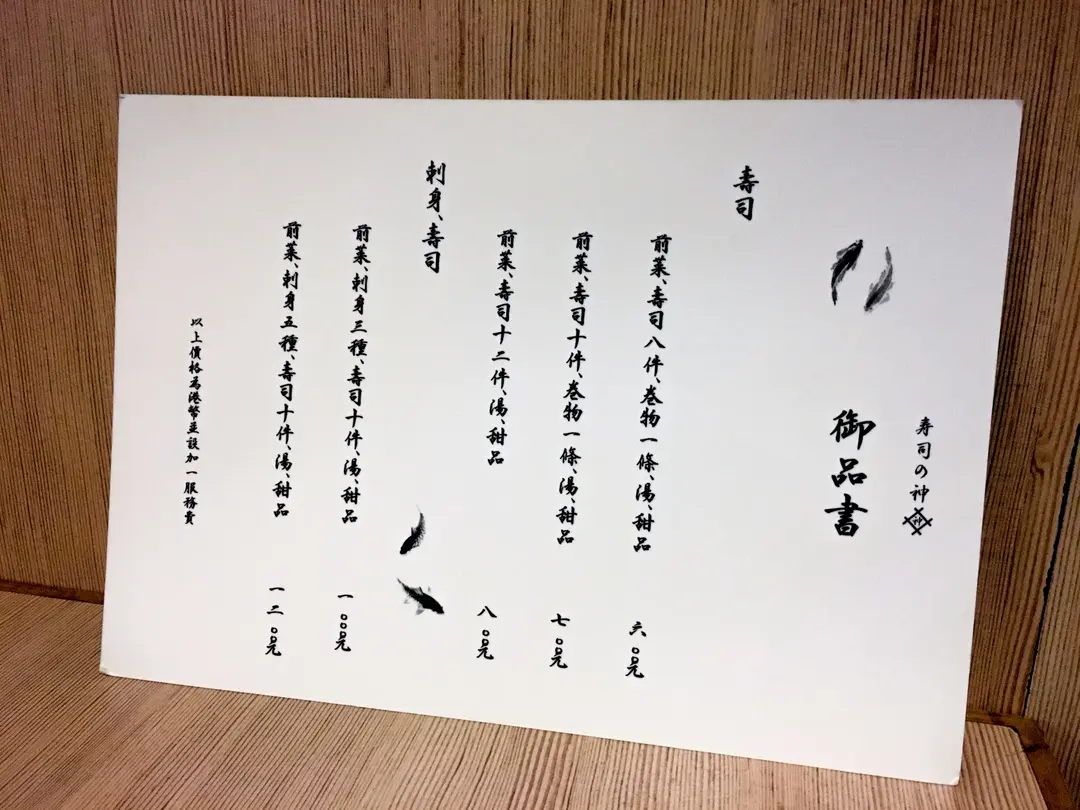 寿司の神
神
御品書
壽司
前菜、壽司八件、卷物一條、湯、甜品 六〇〇元
前菜、壽司十件、卷物一條、湯、甜品 七〇〇元
前菜、壽司十二件、湯、甜品 八〇〇元
刺身、壽司
前菜、刺身三種、壽司十件、湯、甜品 一〇〇〇元
前菜、刺身五種、壽司十件、湯、甜品 一二〇〇元
以上價格為港幣並設加一服務費